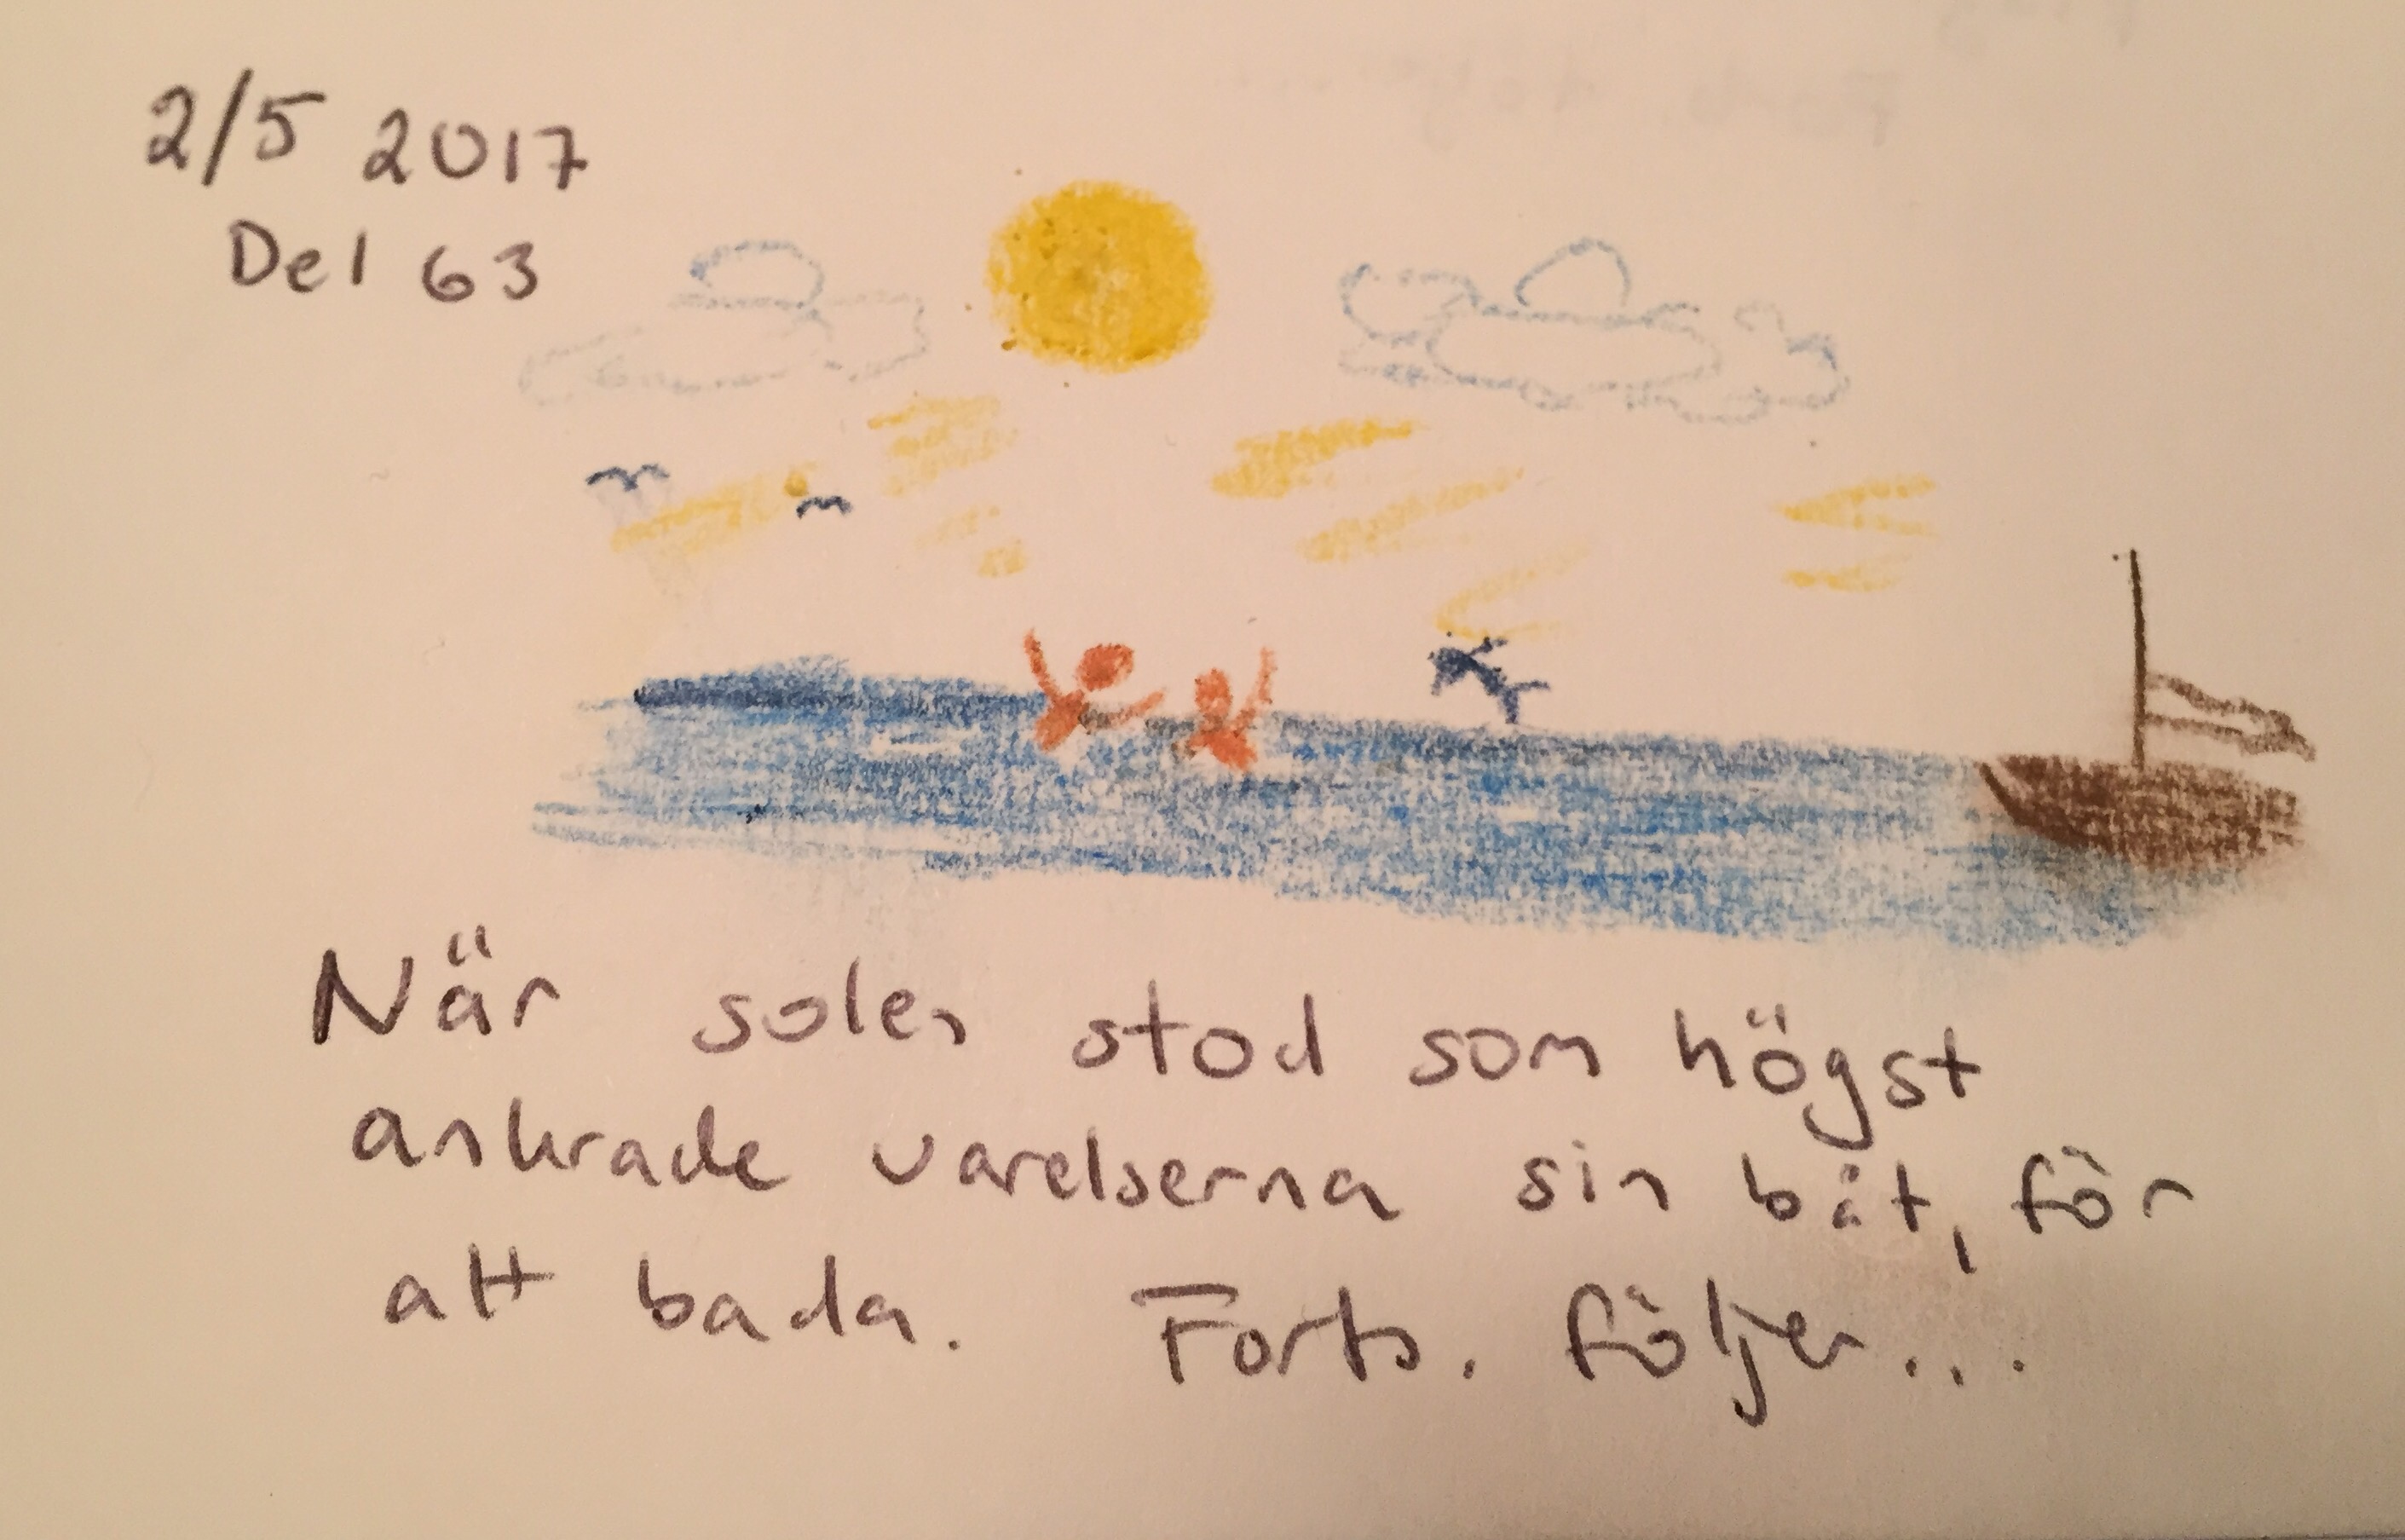 2/5 2017
Del 63
När solen stod som högst
ankrade varelserna sin båt, för
att bada. Forts. följer...